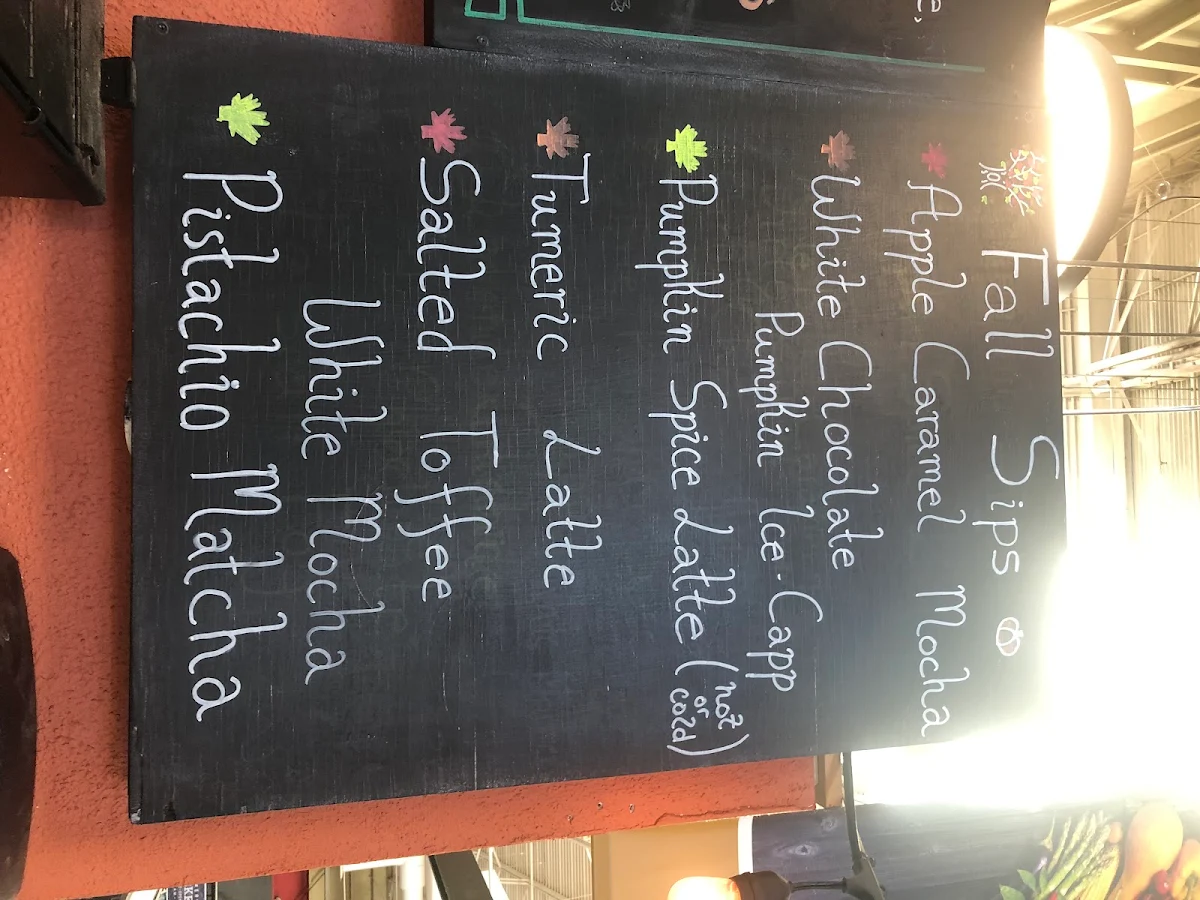 Fall Sips
Apple Caramel Mocha
White Chocolate
Pumpkin Ice-Capp
Pumpkin Spice Latte (hot or cold)
Tumeric Latte
Salted Toffee
White Mocha
Pistachio Matcha